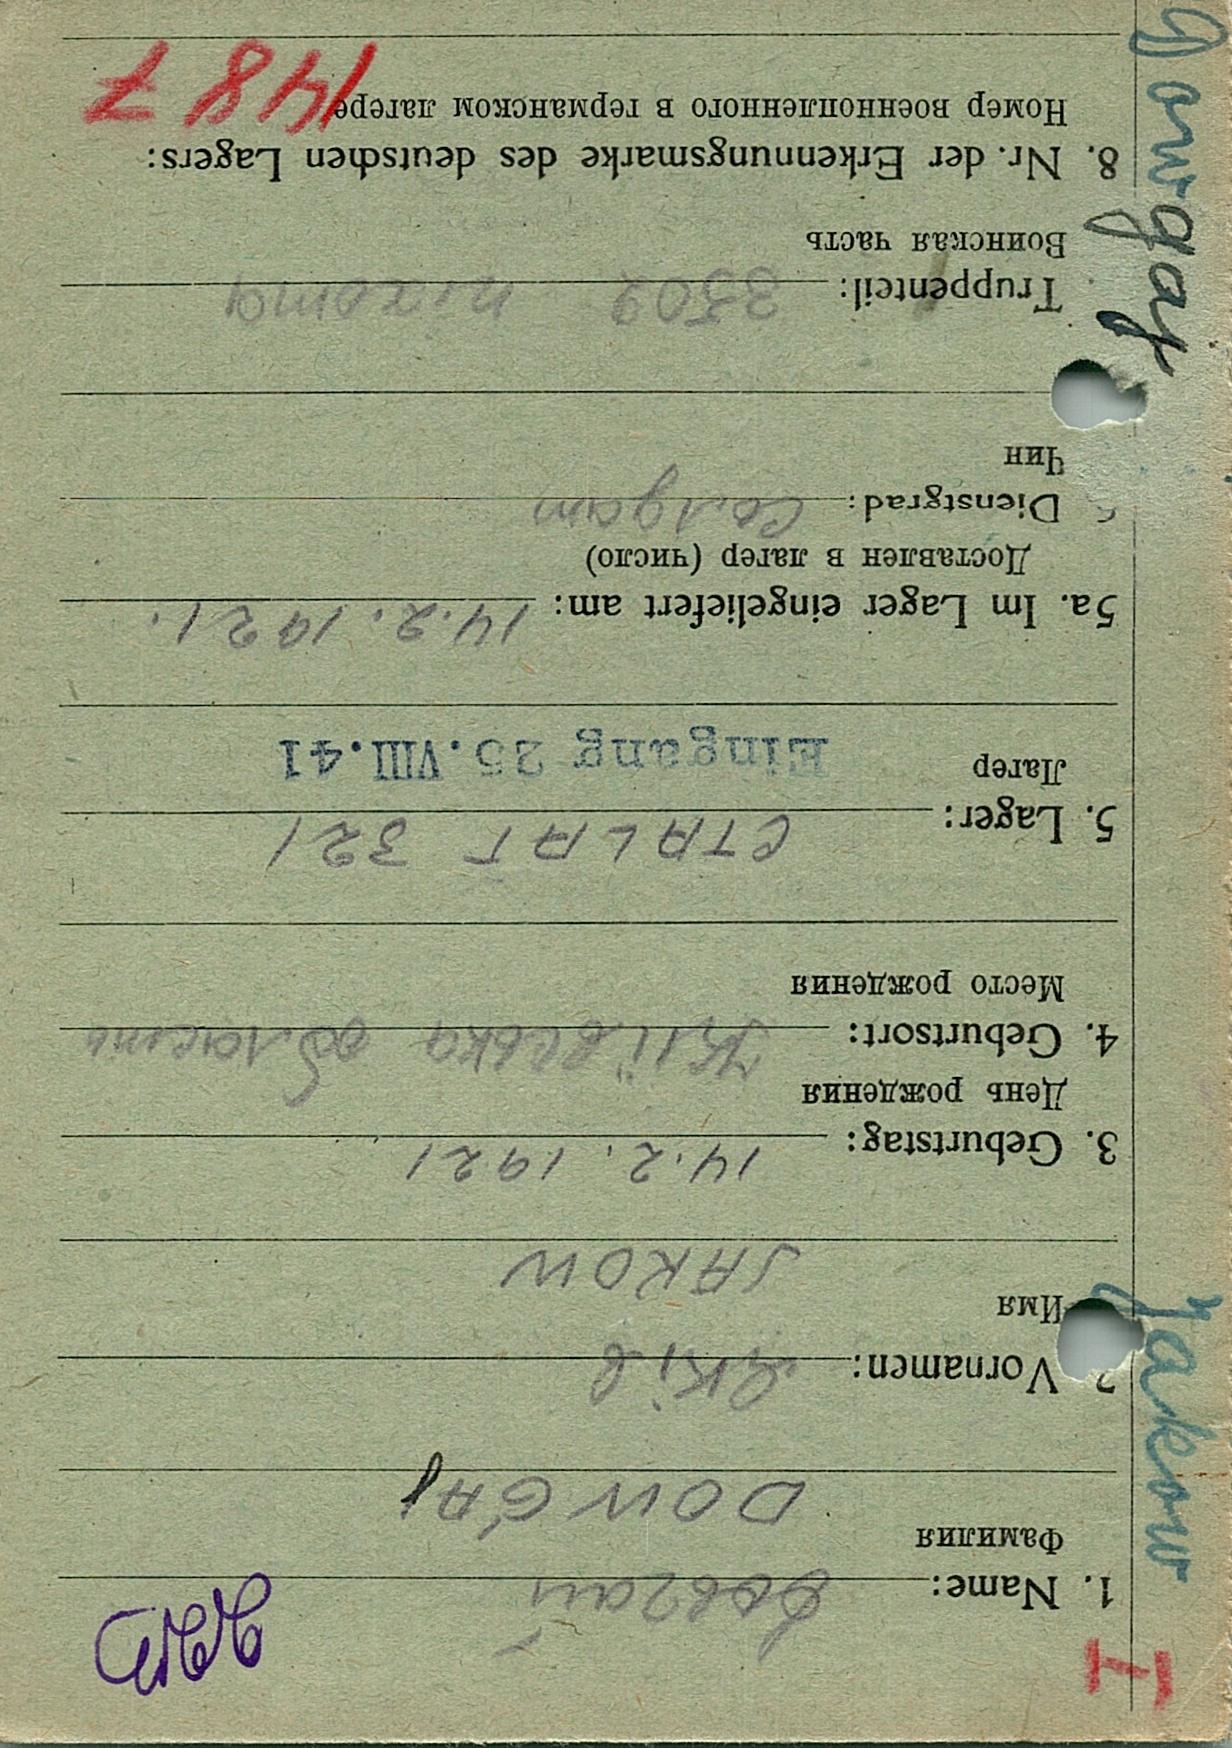 I
1. Name: Довгай
Фамилия
DOWGAJ
2. Vornamen: Яків
Имя
JAKOW
3. Geburtstag: 14.2.1921
День рождения
4. Geburtsort: Київська область
Место рождения
5. Lager: СТАLАГ 321
Лагер
Eingang 25.VIII.41
5a. Im Lager eingeliefert am: 14.2.1921.
Доставлен в лагер (число)
Dienstgrad: Солдат
Чин
Truppenteil: 3509 піхота
Воинская часть
8. Nr. der Erkennungsmarke des deutschen Lagers:
Номер военнопленного в германском лагере
1487
Jakow
Dowgaj